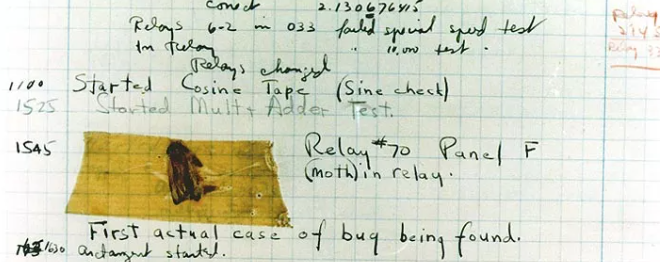 conect 2.130676415
Relays 6-2 in 033 failed special speed test
in Relay " 10,000 test.
Relays changed
1100 Started Cosine Tape (Sine check)
1525 Started Mult+Adder Test.
1545 Relay #70 Panel F
(moth) in relay.
First actual case of bug being found.
1630 arctangent started.
Relay